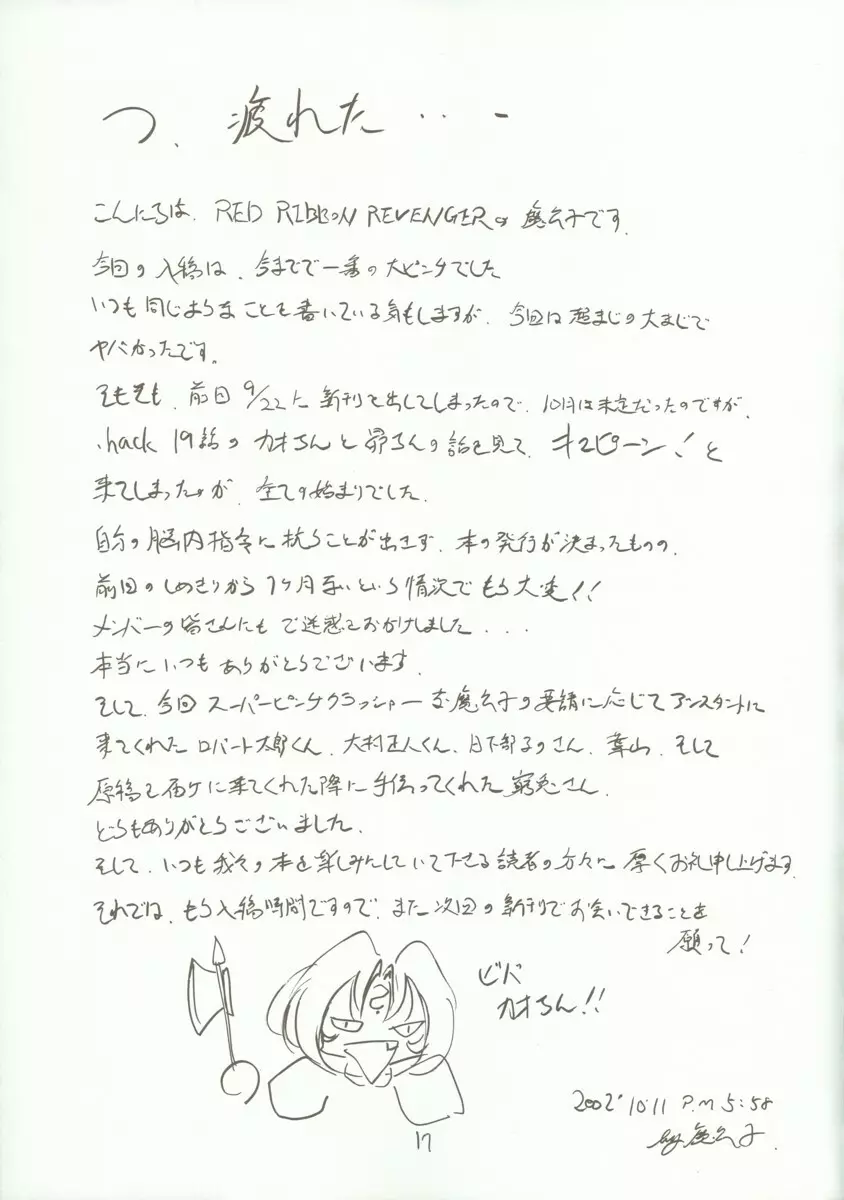 つ、疲れた・・ー
こんにちは、RED RIBBON REVENGERの魔公子です。
今回の入稿は、今までで一番の大ピンチでした
いつも同じようなことを書いている気もしますが、今回は超まじの大まじで
ヤバかったです。
そもそも、前回9/22に新刊を出してしまったので、10月は未定だったのですが、
.hack 19話のカオちんと昴ちんの話を見て、キュピーン!と
来てしまったのが、全ての始まりでした。
自分の脳内指令に抗うことが出きず、本の発行が決まったものの、
前回のしめきりから1ヶ月無いという情況でもう大変!!
メンバーの皆さんにもご迷惑をおかけしました...
本当にいつもありがとうございます。
そして、今回スーパーピンチクラッシャーな魔公子の要請に応じてアシスタントに
来てくれたロバート太郎くん、大村正人くん、日下部さん、葉山、そして
原稿を届けに来てくれた際に手伝ってくれた窮兎さん。
どうもありがとうございました。
そして、いつも我々の本を楽しみにしていて下さる読者の方々に厚くお礼申し上げます。
それでは、もう入稿時間ですので、また次回の新刊でお会いできることを
願って!
ビバ
カオちん!!
2002' 10.11 P.M 5:58
by 魔公子.
17